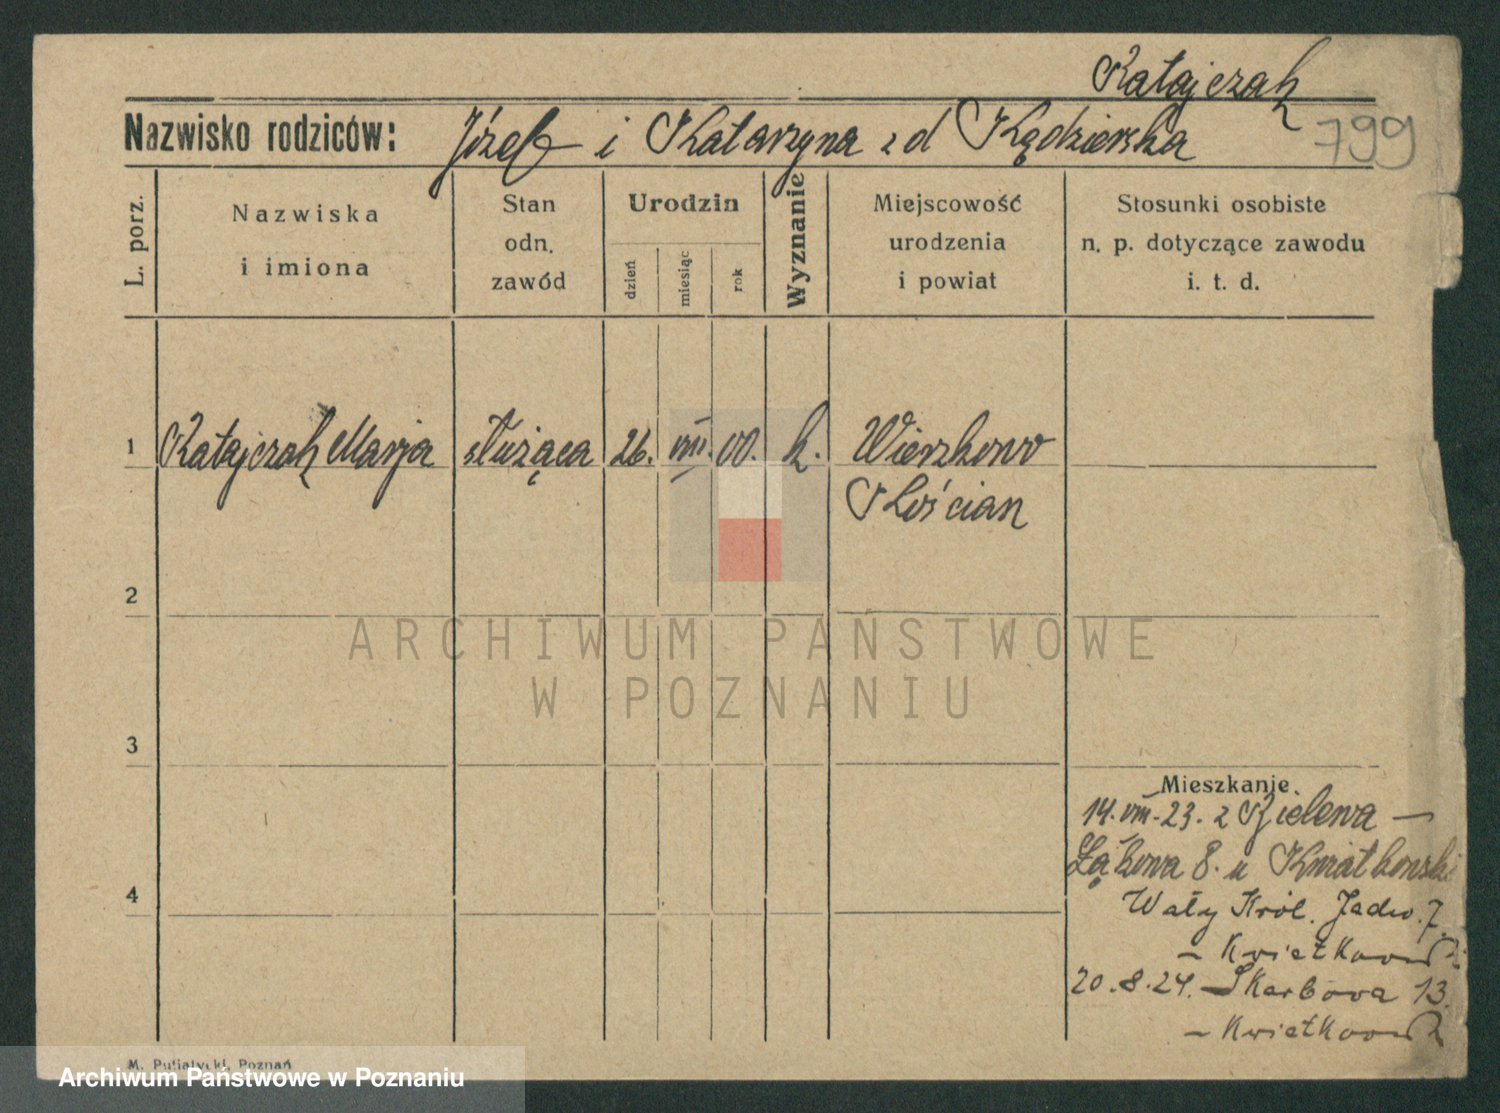 Ratajczak
Nazwisko rodziców: Józef i Katarzyna z d Kędzierska 799
L. porz.
Nazwiska
i imiona
Stan
odn.
zawód
Urodzin
dzień
miesiąc
rok
Wyznanie
Miejscowość
urodzenia
i powiat
Stosunki osobiste
n. p. dotyczące zawodu
i. t. d.
1 Ratajczak Marja służąca 26. VIII. 00. k. Wierzkowo
Kościan
2
3
4
ARCHIWUM PAŃSTWOWE
W POZNANIU
Mieszkanie
14. VIII. 23. z Kielewa —
Łąkowa 8. u Kwiatkowski
Wały Król. Jadw. 7.
— Kwiatkowski
20.8.24. — Skarbowa 13.
— Kwiatkowsk
M. Putiatycki, Poznań
Archiwum Państwowe w Poznaniu